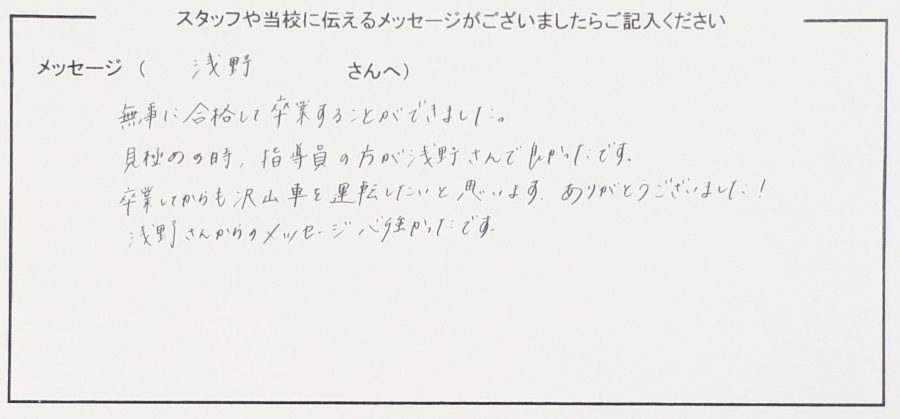 スタッフや当校に伝えるメッセージがございましたらご記入ください
メッセージ（ 浅野 さんへ）
無事に合格して卒業することができました。
見極めの時、指導員の方が浅野さんで良かったです。
卒業してからも沢山車を運転したいと思います。ありがとうございました！
浅野さんからのメッセージ心強かったです。